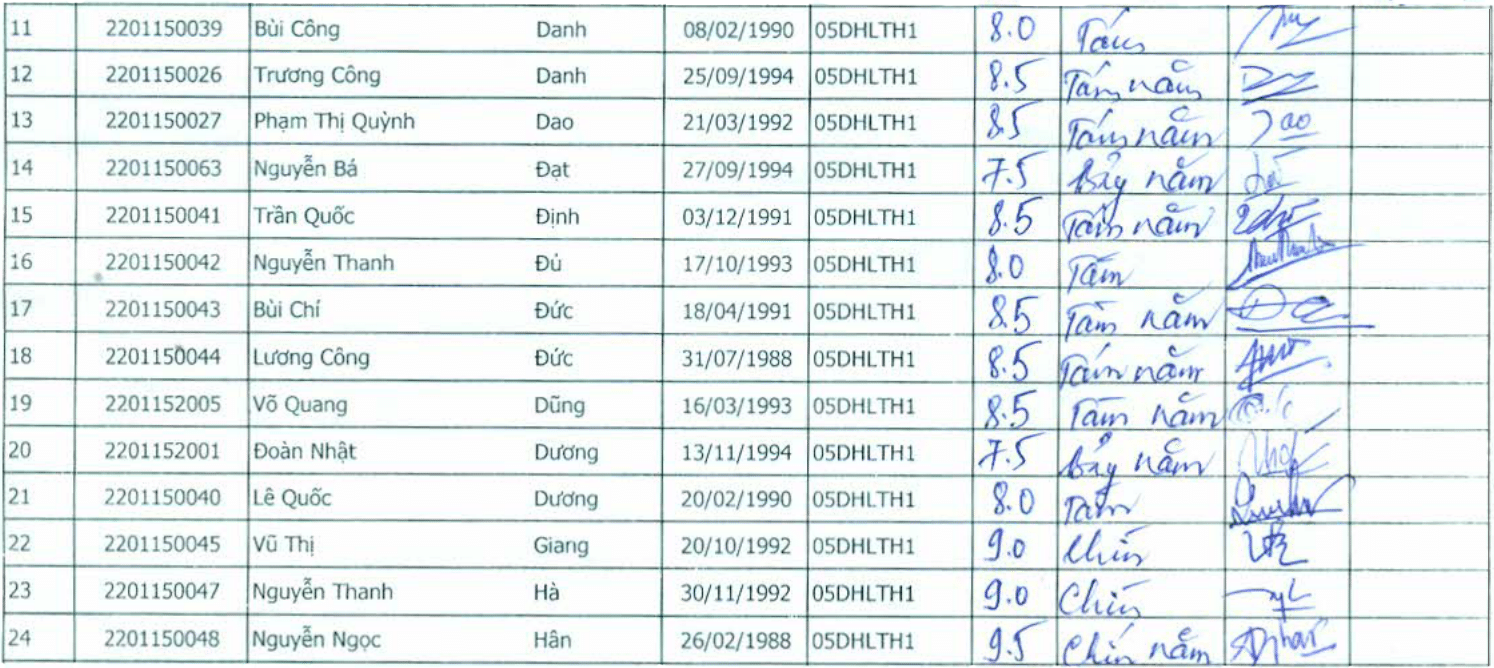 11 2201150039 Bùi Công Danh 08/02/1990 05DHLTH1 8.0 Tám
12 2201150026 Trương Công Danh 25/09/1994 05DHLTH1 8.5 Tám năm
13 2201150027 Phạm Thị Quỳnh Dao 21/03/1992 05DHLTH1 8.5 Tám năm Dao
14 2201150063 Nguyễn Bá Đạt 27/09/1994 05DHLTH1 7.5 Bảy năm
15 2201150041 Trần Quốc Định 03/12/1991 05DHLTH1 8.5 Tám năm
16 2201150042 Nguyễn Thanh Đủ 17/10/1993 05DHLTH1 8.0 Tám
17 2201150043 Bùi Chí Đức 18/04/1991 05DHLTH1 8.5 Tám năm
18 2201150044 Lương Công Đức 31/07/1988 05DHLTH1 8.5 Tám năm
19 2201152005 Võ Quang Dũng 16/03/1993 05DHLTH1 8.5 Tám năm
20 2201152001 Đoàn Nhật Dương 13/11/1994 05DHLTH1 7.5 Bảy năm
21 2201150040 Lê Quốc Dương 20/02/1990 05DHLTH1 8.0 Tám
22 2201150045 Vũ Thị Giang 20/10/1992 05DHLTH1 9.0 Chín
23 2201150047 Nguyễn Thanh Hà 30/11/1992 05DHLTH1 9.0 Chín
24 2201150048 Nguyễn Ngọc Hân 26/02/1988 05DHLTH1 9.5 Chín năm